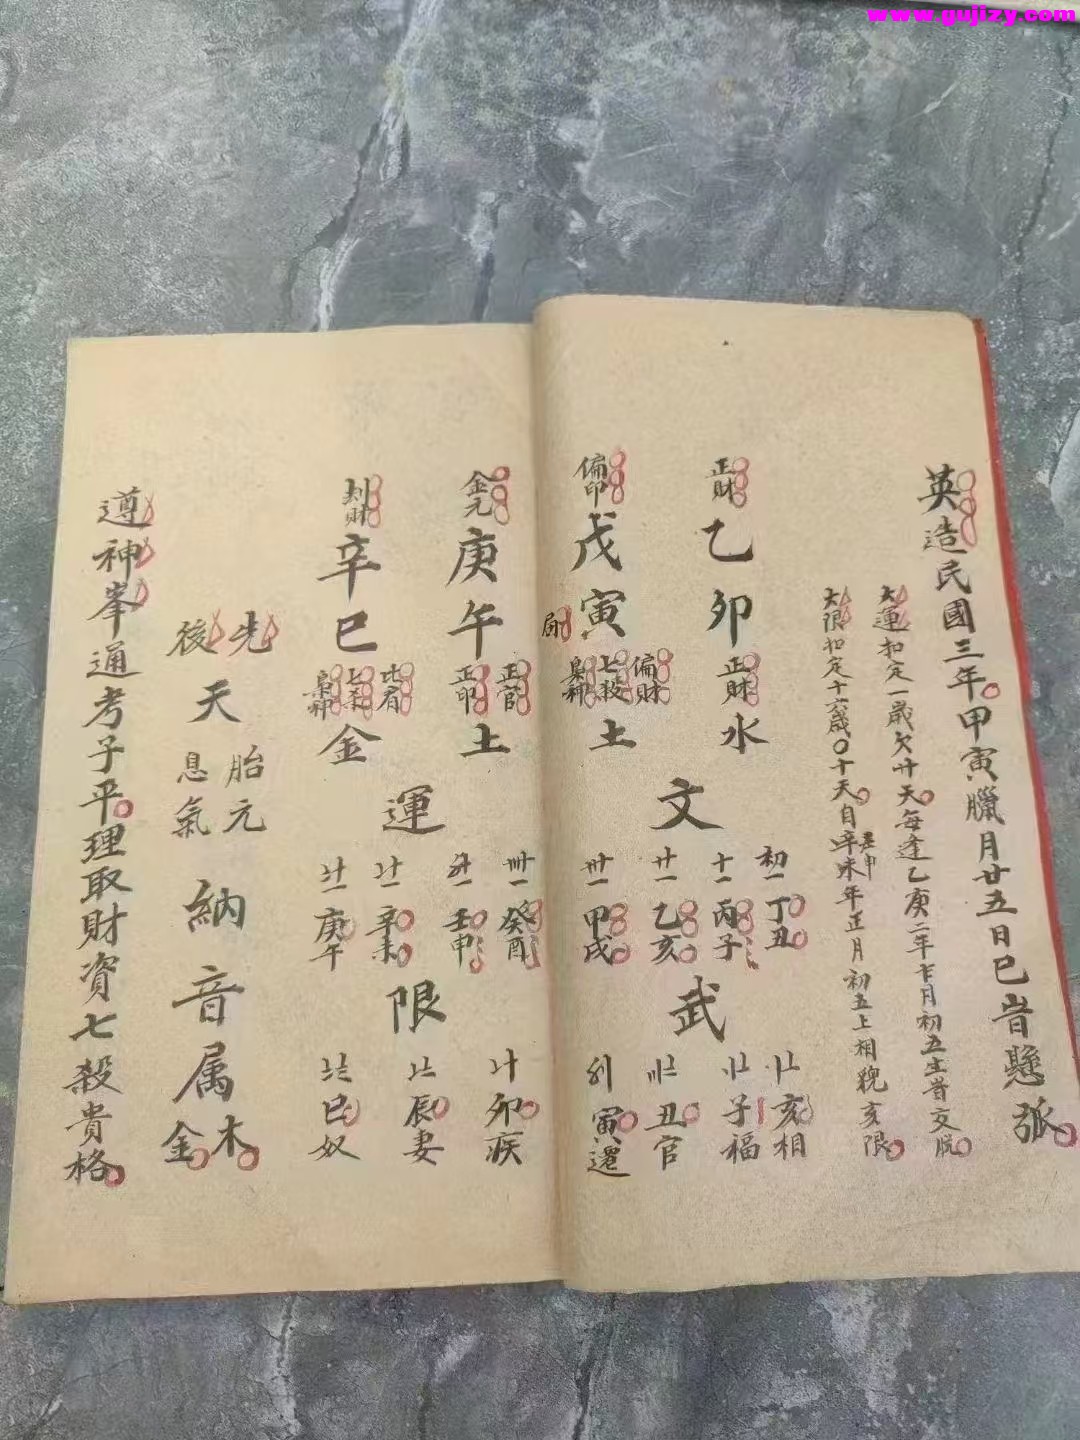 www.gujizy.com
英造民國三年甲寅臘月廿五日巳旹懸弧
大運扣定一歲欠廿天每逢乙庚二年十月初五生旹交脫
大限扣定十六歲〇十天自辛未年正月初五上相貌亥限
庚申
正財
乙卯
正財
水
偏印
戊寅
局
偏財
七殺
梟神
土
文
初一丁丑
十一丙子
廿一乙亥
卅一甲戌
武
亥相
子福
丑官
寅遷
金元
庚午
正官
正印
土
刦財
辛巳
比肩
七殺
梟神
金
運
卌一癸酉
壬申
辛未
庚午
限
卯疾
辰妻
巳奴
先
後
天
胎元
息氣
納音属
木
金
遵神峯通考子平理取財資七殺貴格